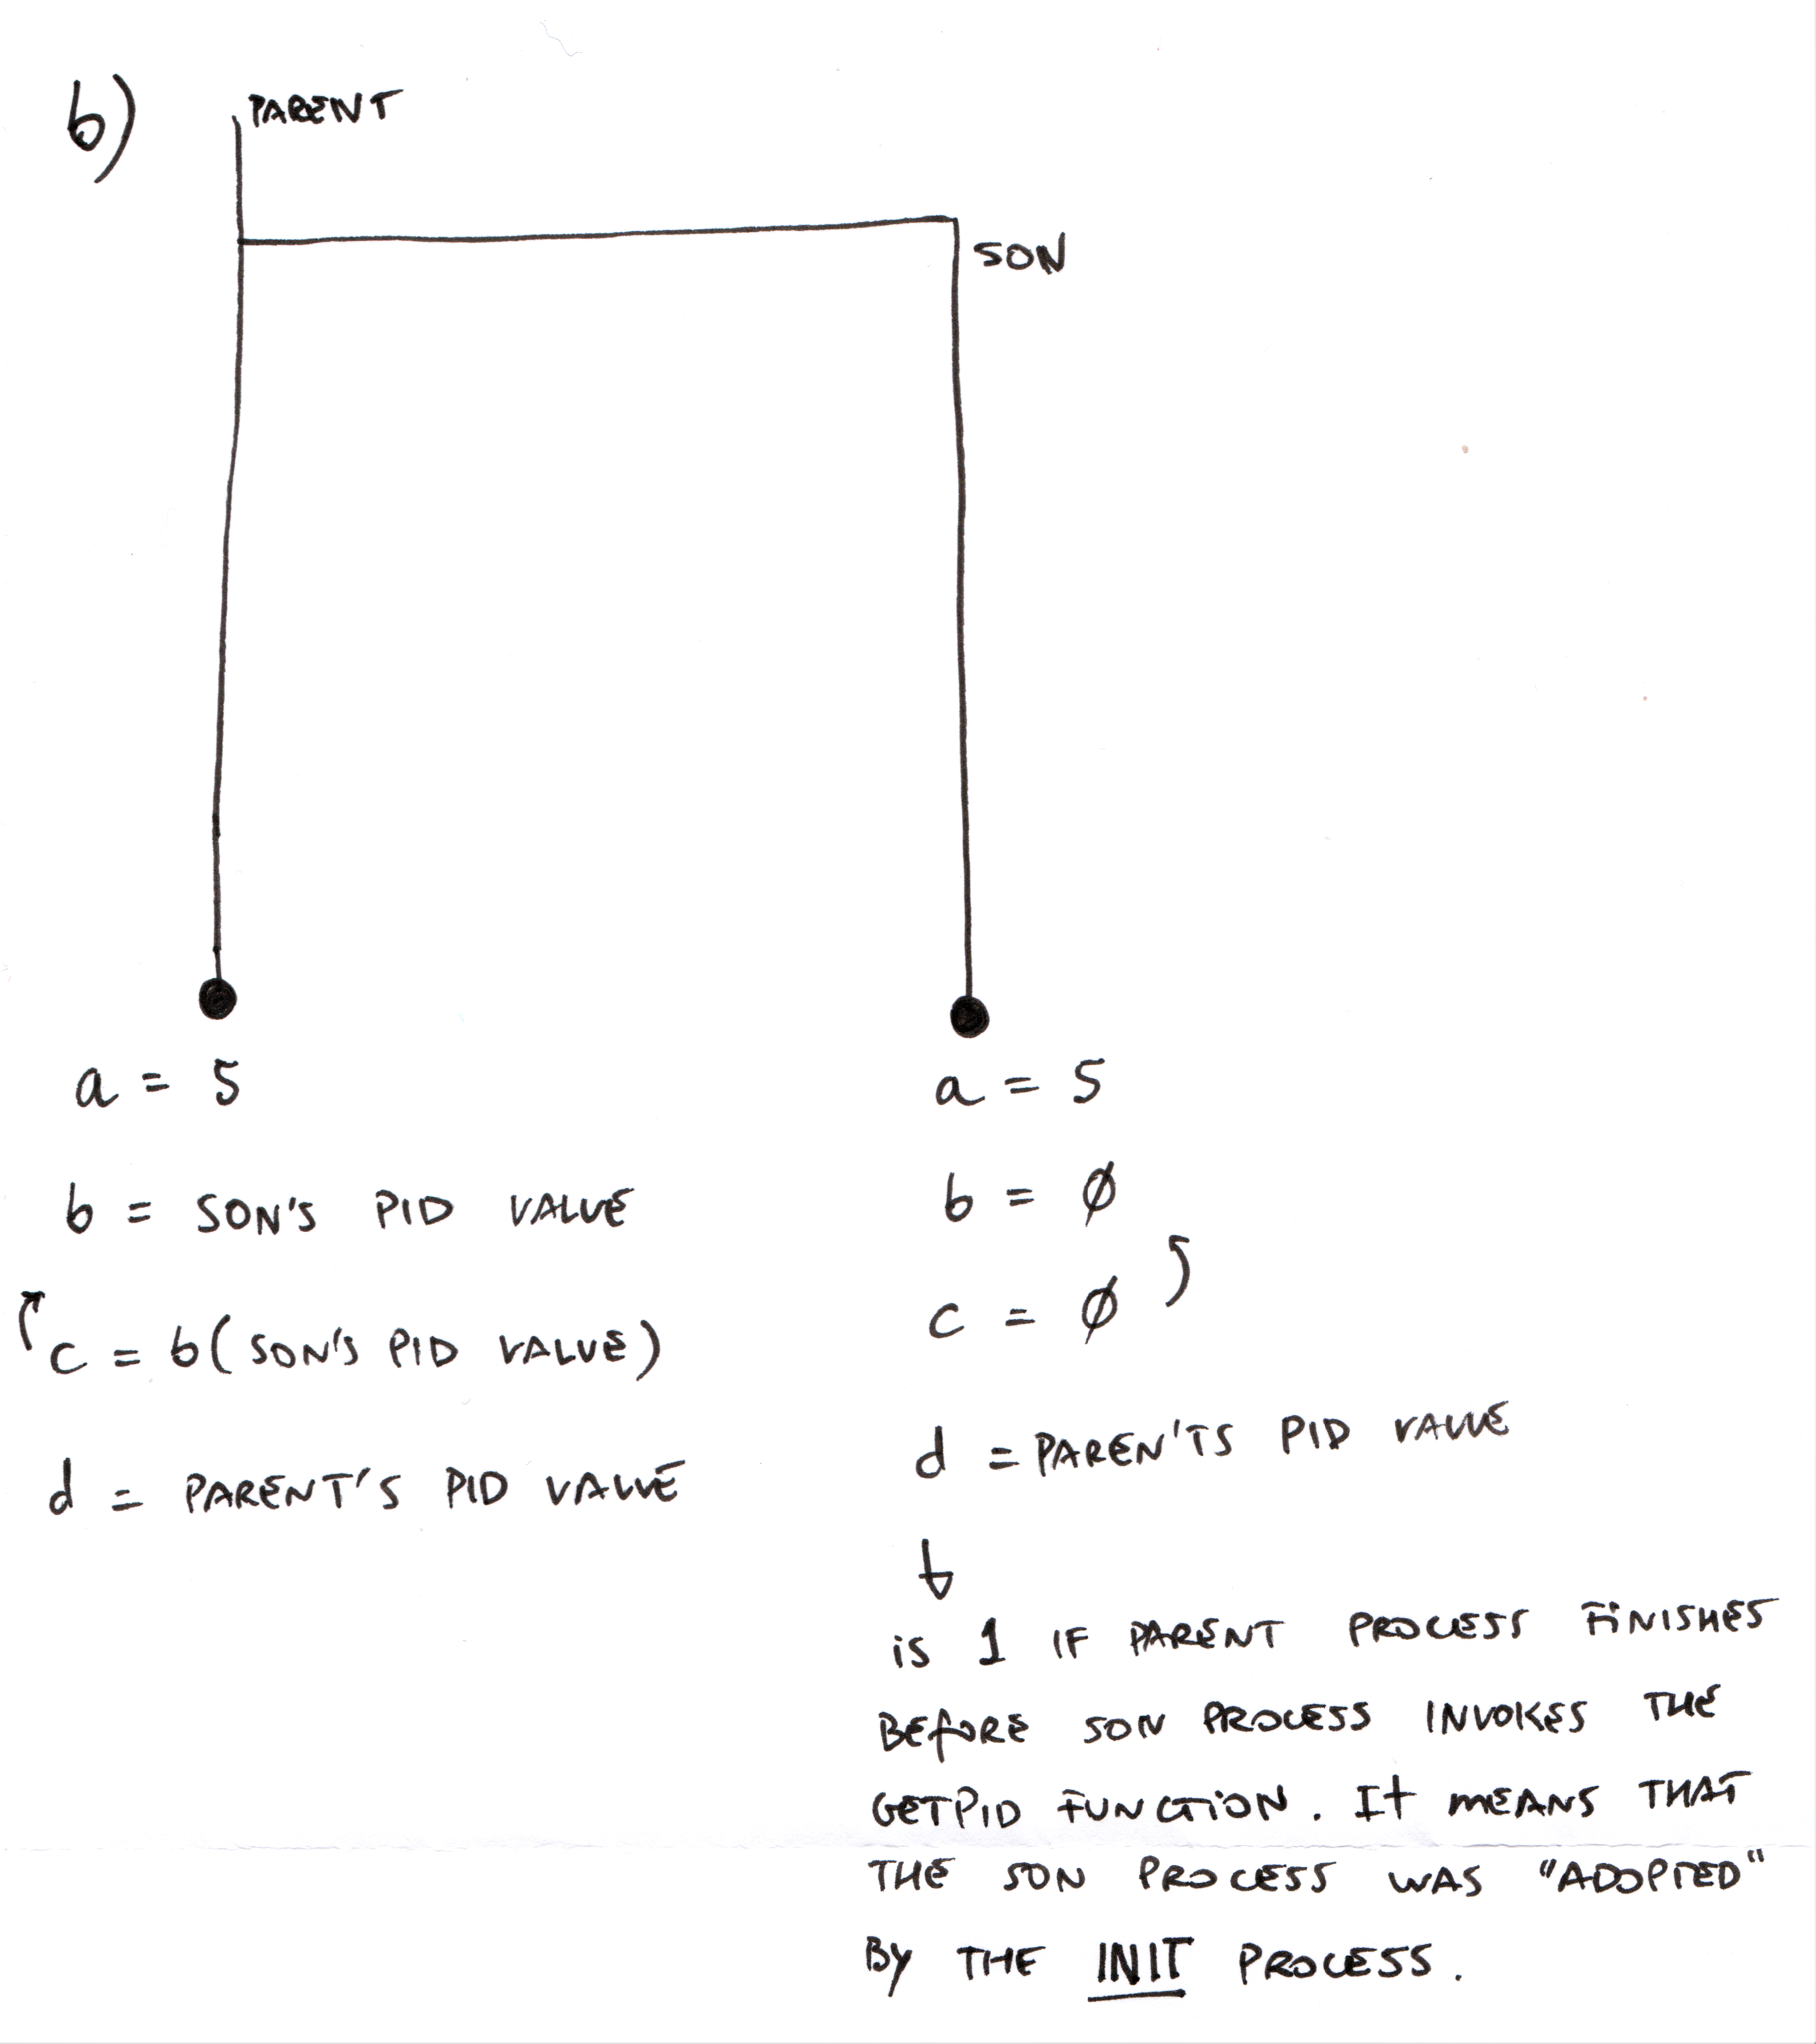 b)
PARENT
SON
a = 5
b = SON'S PID VALUE
c = b (SON'S PID VALUE)
d = PARENT'S PID VALUE
a = 5
b = Ø
c = Ø
d = PAREN'TS PID VALUE
is 1 IF PARENT PROCESS FINISHES
BEFORE SON PROCESS INVOKES THE
GETPID FUNCTION. It MEANS THAT
THE SON PROCESS WAS "ADOPTED"
BY THE INIT PROCESS.